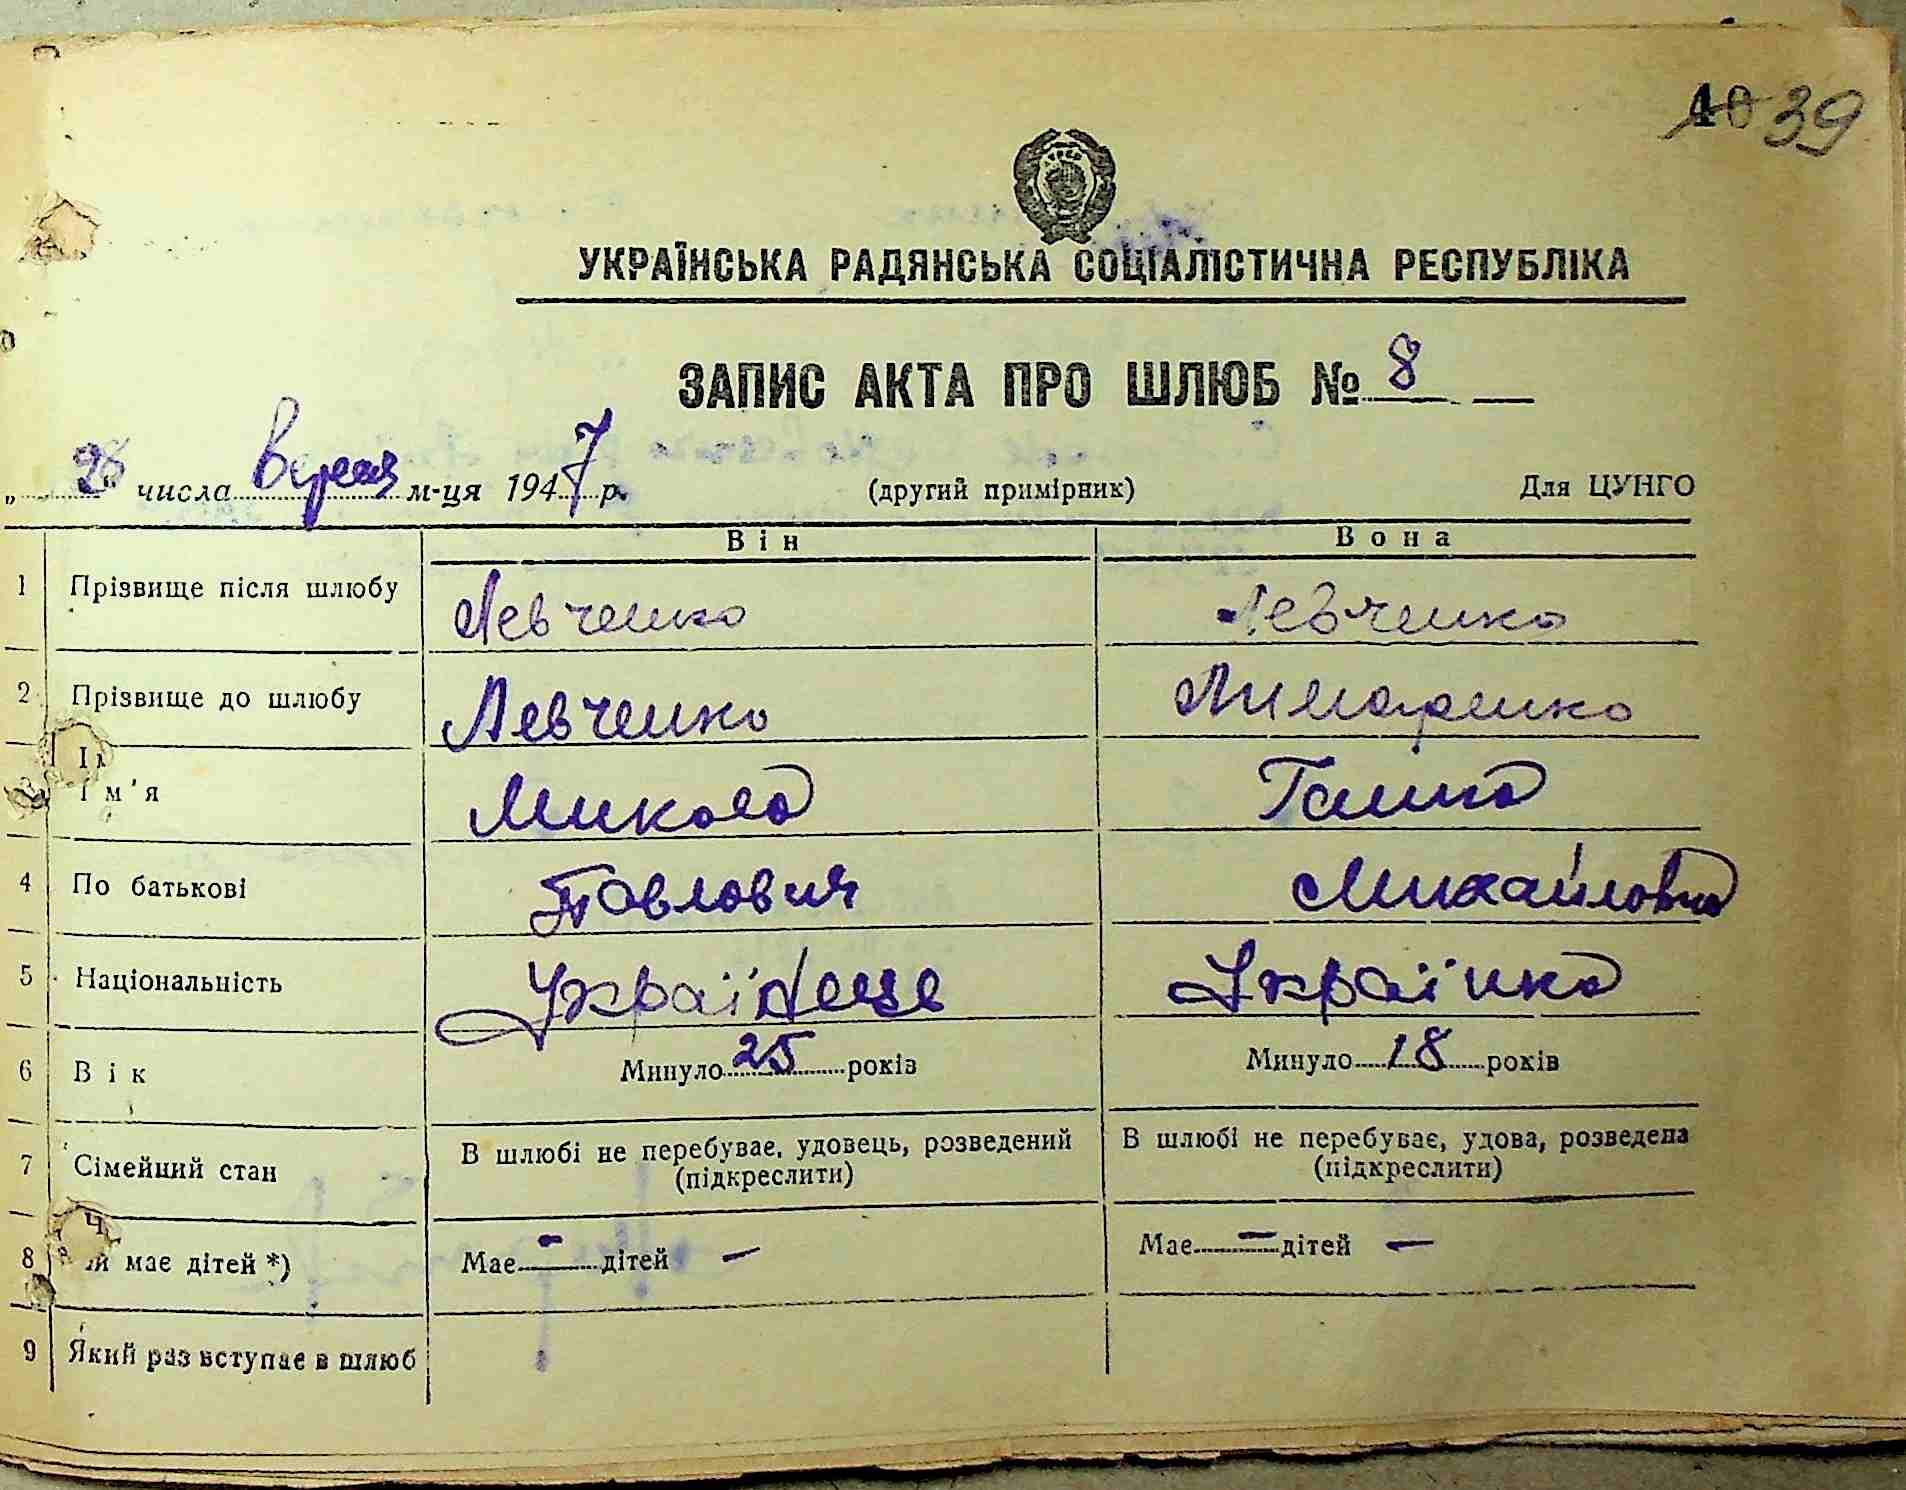 40 39
УКРАЇНСЬКА РАДЯНСЬКА СОЦІАЛІСТИЧНА РЕСПУБЛІКА
ЗАПИС АКТА ПРО ШЛЮБ № 8
„ 28 " числа вересня м-ця 1947 р. (другий примірник) Для ЦУНГО
Він Вона
1 Прізвище після шлюбу Левченко Левченко
2 Прізвище до шлюбу Левченко Лимаренко
3 Ім'я Микола Ганна
4 По батькові Павлович Михайловна
5 Національність Українець Українка
6 Вік Минуло 25 років Минуло 18 років
7 Сімейний стан В шлюбі не перебуває, удовець, розведений (підкреслити) В шлюбі не перебуває, удова, розведена (підкреслити)
8 Чи має дітей *) Має - дітей - Має - дітей -
9 Який раз вступає в шлюб